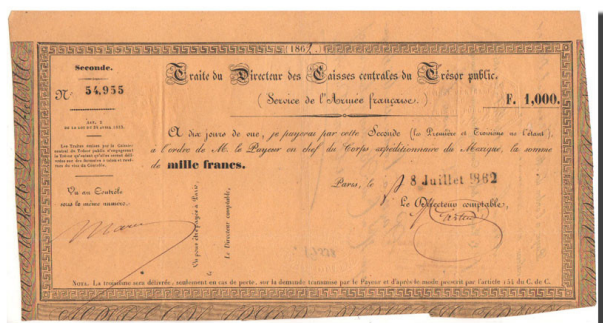 186
Seconde.
N° 54,955
Traite du Directeur des Caisses centrales du Trésor public.
(Service de l'Armée française.)
F. 1,000.
A dix jours de vue, je payerai par cette Seconde (la Première et Troisième ne l'étant),
à l'ordre de M. le Payeur en chef du Corps expéditionnaire du Mexique, la somme
de mille francs.
Vu au Contrôle
sous le même numéro,
Paris, le 8 Juillet 1862
Le Directeur comptable,
Vu pour être payée à Paris,
Le Directeur comptable,
NOTA. La troisième sera délivrée, seulement en cas de perte, sur la demande transmise par le Payeur et d'après le mode prescrit par l'article 154 du C. de C.